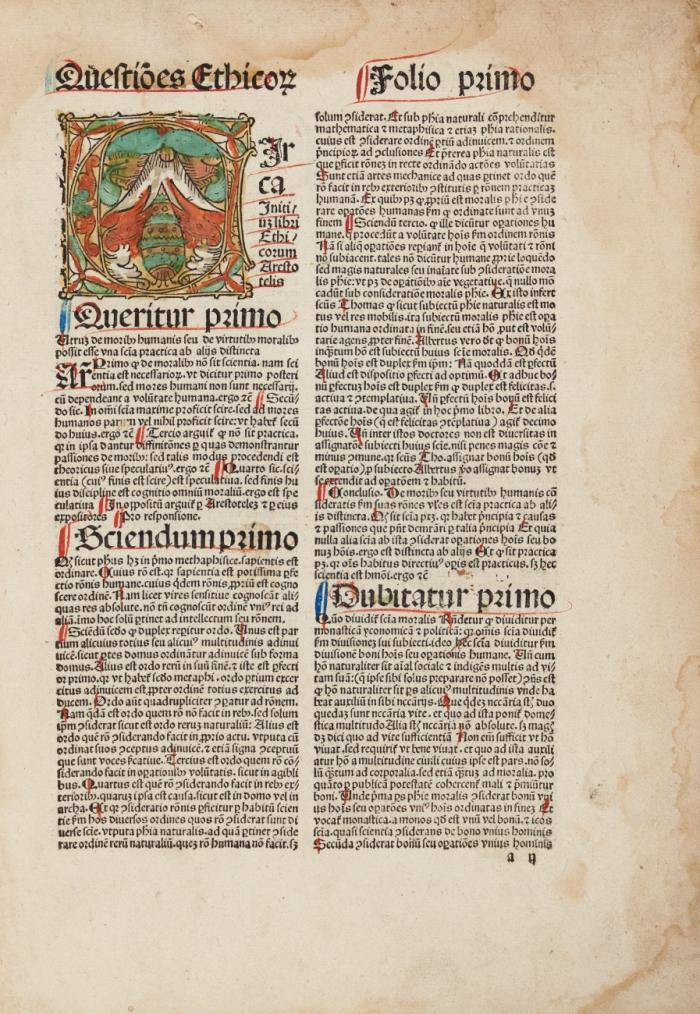 Questiões Ethicoꝝ
Folio primo
Ir
ca
Initi/
ū libri
Ethi/
corum
Aresto
telis
Queritur primo
Utrū de morib⁹ humanis seu de virtutib⁹ moralib⁹
possit esse vna scīa practica ab alijs distincta
Ar Primo ꝙ de moralib⁹ nō sit scientia. nam sci
entia est necessarioꝝ. vt dicitur primo posteri
orum. sed mores humani non sunt necessarij.
cū dependeant a voluntate humana. ergo ⁊c̄ Secū-
do sic. In omi scīa maxime proficit scire. sed ad mores
humanos parum vel nihil proficit scire: vt habet̄ secū
do huius. ergo ⁊c̄ Tercio arguit̄ ꝙ nō sit practica.
qꝛ in ipsa dantur diffinitōnes ꝑ quas demonstrantur
passiones de morib⁹: sed talis modus procedendi est
theoricus siue speculatiu⁹. ergo ⁊c̄. Quarto sic. sci-
entia (cui⁹ finis est scire) est speculatiua. sed finis hu
ius discipline est cognitio omniū moraliū. ergo est spe
culatiua In oppositū arguit̄ ꝑ Arestotelez ⁊ ꝑ eius
expositōres Pro responsione.
Sciendum primo
ꝙ sicut phūs hꝫ in p̄mo methaphisice. sapientis est
ordinare. Cuius rō est. qꝛ sapientia est potissima ꝑfe
ctio rōnis humane. cuius q̄dem rōnis ꝓpriū est cogno
scere ordinē. Nam licet vires sensitiue cognoscāt ali-
quas res absolute. nō tn̄ cognoscūt ordinē vni⁹ rei ad
aliā. imo hoc solū ꝑtinet ad intellectum seu rōnem.
Sciēdū scdo ꝙ duplex reꝑitur ordo. Unus est par
tium alicuius totius seu alicui⁹ multitudinis adinui
uicē. sicut ꝑtes domus ordinātur adinuicē sub forma
domus. Alius est ordo rerū in suū finē. ⁊ iste est ꝑfecti
or primo. qꝛ vt habet̄ scdo metaphi. ordo ꝑtium exer
citus adinuicem est. ꝓpter ordinē totius exercitus ad
ducem. Ordo aūt quadrupliciter ꝯꝑatur ad rōnem.
Nam q̄dā est ordo quem rō nō facit in reb⁹. sed solum
ip̄m ꝯsiderat sicut est ordo reruꝫ naturaliū. Alius est
ordo quē rō ꝯsiderando facit in ꝓprio actu. vtputa cū
ordinat suos ꝯceptus adinuicē. ⁊ etiā signa ꝯceptuū
que sunt voces ſcatiue. Tercius est ordo quem rō cō-
siderando facit in oꝑationib⁹ volūtatis. sicut in agibili
bus. Quartus est quē rō ꝯsiderando facit in reb⁹ ex-
teriorib⁹. quaruꝫ ipsa est causa. sicut est in domo vel in
archa. Et qꝛ ꝯsideratio rōnis ꝑficitur ꝑ habitū scien
tie ſm hos diuersos ordines quos rō ꝯsiderat sunt di
uerse scīe. vtputa phīa naturalis. ad quā ꝑtinet ꝯside
rare ordinē rerū naturaliū. quez rō humana nō facit. sꝫ
solum ꝯsiderat. Et sub phīa naturali cōprehenditur
mathematica ⁊ metaphisica ⁊ etiaꝫ phīa rationalis.
cuius est ꝯsiderare ordinē ꝑtiū adinuicem. ⁊ ordinem
p̄ncipioꝝ ad ꝯclusiones Et p̄terea phīa naturalis est
que ꝑficit rōnez in recte ordinādo actōes volūtarias
Sunt etiā artes mechanice ad quas ꝑtinet ordo quē
rō facit in reb⁹ exteriorib⁹ ꝯstitutis ꝑ rōnem practicaꝫ
humanā. Ex quib⁹ pꝫ ꝙ ꝓpriū est moralis phīe ꝯside
rare oꝑatōes humanas ſm ꝙ ordinate sunt ad vnuꝫ
finem Sciendū tercio. ꝙ ille dicūtur oꝑationes hu
mane. q̄ procedūt a volūtate hoīs ſm ordinem rōnis
Nā si aliq̄ oꝑationes reꝑiant̄ in hoīe q̄ volūtati ⁊ rōni
nō subiacent. tales nō dicūtur humane ꝓprie loquēdo
sed magis naturales seu inatate sub ꝯsideratiōe mora
lis phīe: vt pꝫ de oꝑatōib⁹ aīe vegetatiue. q̄ nullo mō
cadūt sub consideratiōe moralis phīe. Ex isto infert
scūs Thomas ꝙ sicut subiectū phīe naturalis est mo
tus vel res mobilis. ita subiectū moralis phīe est oꝑa
tio humana ordinata in finē. seu etiā hō. ꝓut est volū-
tarie agens. ꝓpter finē. Albertus vero dt̄ ꝙ bonū hoīs
inq̄tum hō est subiectū huius scīe moralis. Qd̄ qdē
bonū hoīs est duplex ſm ipm: Nā quoddā est ꝑfectū
Aliud est dispositio ꝑfecti ad optimū. Et adhuc bo-
nū ꝑfectuꝫ hoīs est duplex ſm ꝙ duplex est felicitas. s.
actiua ⁊ ꝯtemplatiua. Un̄ ꝑfectū hoīs bonū est felici
tas actiua. de qua agit̄ in hoc p̄mo libro. Et de alia
ꝑfectōe hoīs (ꝙ est felicitas ꝯtēplatiua) agit̄ decimo
huius. Un̄ inter istos doctores non est diuersitas in
assignatōe subiecti huius scīe. nisi penes magis cōe ⁊
minus ꝯmune. qꝛ scūs Tho. assignat bonū hoīs (qd̄
est oꝑatio) ꝓ subiecto Albertus ꝟo assignat bonuꝫ vt
se extendit ad oꝑatōem ⁊ habitū.
Conclusio. De morib⁹ seu virtutib⁹ humanis cō
sideratis ſm suas rōnes vl̄es est scīa practica ab ali-
is distincta. Qꝛ sit scīa pꝫ. qꝛ habet p̄ncipia ⁊ causas
⁊ passiones que pn̄t demrāri ꝑ talia p̄ncipia Et quia
nulla alia scīa ab ista ꝯsiderat oꝑationes hoīs seu bo
nuꝫ hōis. ergo est distincta ab alijs Et ꝙ sit practica
pꝫ. qꝛ oīs habitus directiu⁹ oꝑis est practicus. sꝫ hec
scientia est hmōi. ergo ⁊c̄
Dubitatur primo
Quō diuidit̄ scīa moralis Rn̄detur ꝙ diuiditur per
monasticā yconomicā ⁊ politicā: qꝛ omis scīa diuidit̄
ſm diuisionez sui subiecti. ideo hec scīa diuiditur ſm
diuisionē boni hoīs seu oꝑationis humane. Un̄ cum
hō naturaliter sit aīal sociale ⁊ indigēs multis ad vi-
tam suā: (q̄ ipse sibi solus preparare nō posset) ꝯn̄s est
ꝙ hō naturaliter sit ꝑs alicui⁹ multitudinis vnde ha
beat auxiliū in sibi nccārijs. Que q̄dez nccāria st̄. duo
quedaꝫ sunt nccāria vite. et quo ad ista ponit̄ dome-
stica multitudo Alia st̄ nccāria nō absolute. sꝫ maḡ
dꝫ dici quo ad vite sufficientiā Non em̄ sufficit vt hō
viuat. sed requirit̄ vt bene viuat. et quo ad ista auxili
atur hō a multitudine ciuili cuius ipse est pars. nō so-
lū q̄ntum ad corporalia. sed etiā q̄ntuꝫ ad moralia. pro
quāto ꝑ publicā potestatē cohercent̄ mali ⁊ p̄miātur
boni. Unde p̄ma ꝑs phīe moralis ꝯsiderat bonū vni
us hoīs seu oꝑatōes vni⁹ hoīs ordinatas in finez Et
vocat̄ monastica. a monos qd̄ est vnū vel bonū. ⁊ icos
scīa. quasi scientia ꝯsiderans de bono vnius hominis
Secūda ꝯsiderat bonū seu oꝑatiōes vnius hominis
a ij